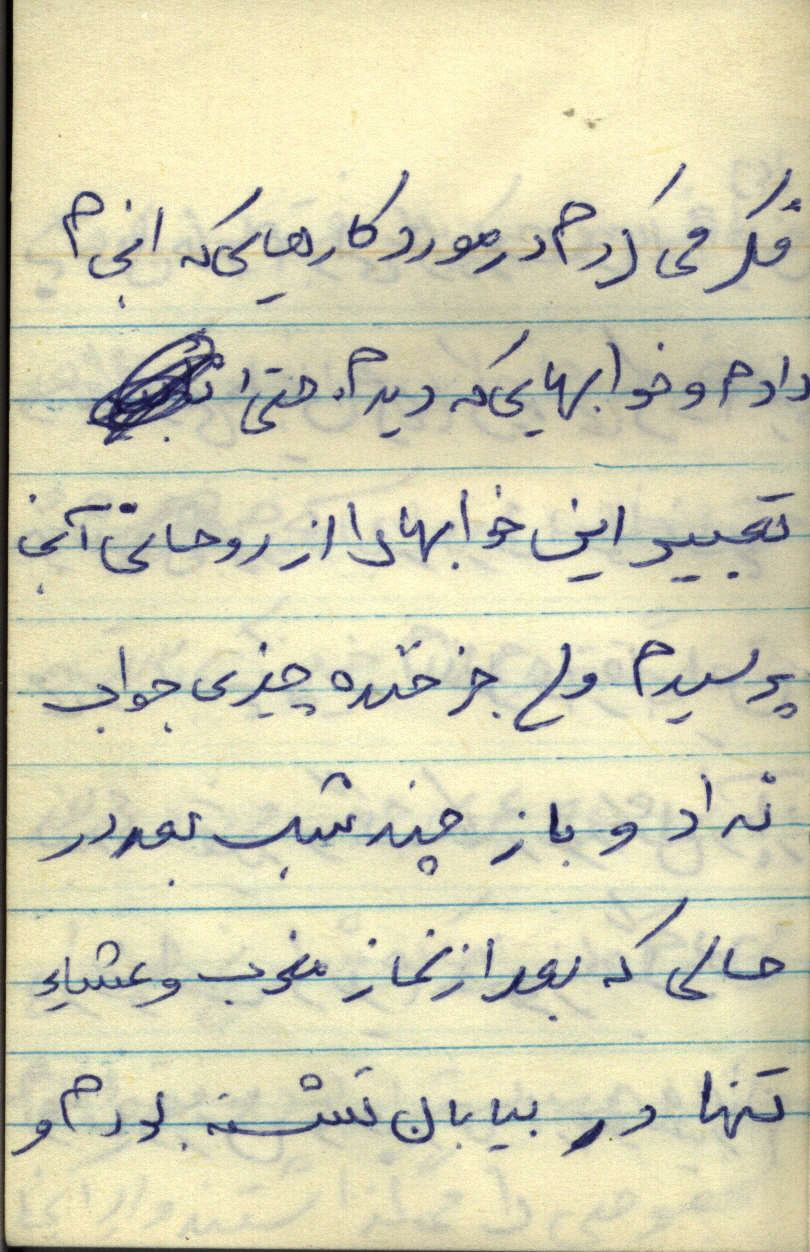 فکر می کردم در مورد کارهایی که انجام
دادم و خوابهایی که دیدم. حتی
تعبیر این خوابها را از روحانی آنجا
پرسیدم ولی جز خنده چیزی جواب
نداد و باز چند شب بعد در
حالی که بعد از نماز مغرب و عشاء
تنها در بیابان نشسته بودم و